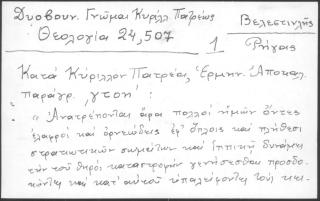 Δυοβουν. Γνῶμαι Κυρίλλ. Πατρέως
Θεολογία 24, 507
Βελεστινλῆς
1
Ρήγας
Κατά Κύριλλον Πατρέα, Ἑρμην. Ἀποκαλ.
παράγρ. γτοή:
"Ἀνατρέπονται ἄρα πολλοί ἡμῶν ὄντες
ἐλαφροί καί ὀρνεώδεις ἐφ' ὅπλοις καί πλήθεσι
στρατιωτικῶν σημείων καί ἱππικῇ δυνάμει
τήν τοῦ θηρός καταστροφήν γενήσεσθαι προσδο-
κῶντες καί κατ' αὐτοῦ ὑπαλείφοντες τούς